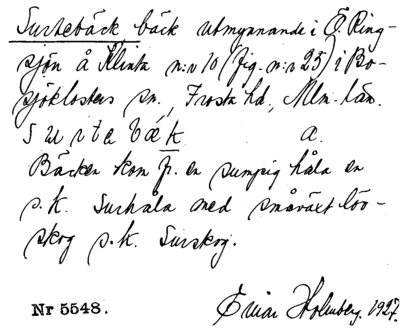 Surtebäck bäck utmynnande i Ö Ring-
sjön å Klinta n:r 10 (fig. n:r 25) i Bo-
sjöklosters sn., Frosta hd, Mlm. län.
surtabæk a.
Bäcken kom fr. en sumpig håla en
s.k. Surhåla med småväxt löv-
skog s.k. Surskog.
Nr 5548. Einar Holmberg. 1927.